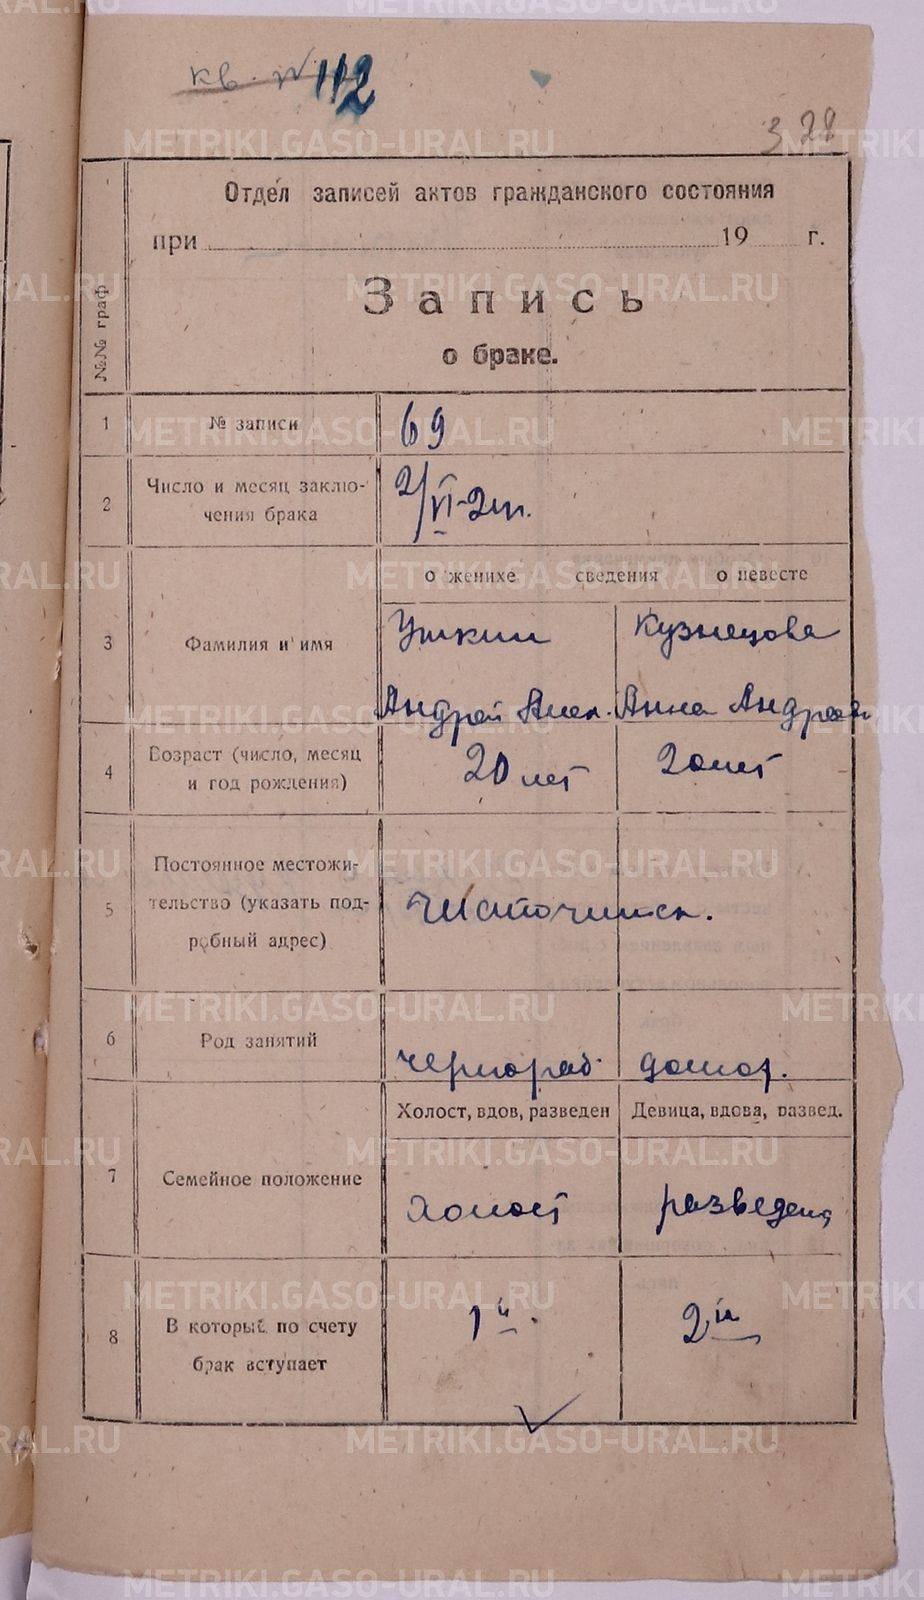 кв. № 112
3 28
Отдел записей актов гражданского состояния
при 19 г.
Запись
о браке.
№№ граф
1 № записи 69
2 Число и месяц заключения брака 2/VI-21г.
о женихе сведения о невесте
3 Фамилия и имя
Уткин Кузнецова
Андрей Алек. Анна Андреев
4 Возраст (число, месяц
и год рождения)
20 лет 20 лет
5 Постоянное местожи-
тельство (указать под-
робный адрес)
6 Род занятий чернораб. домох.
Холост, вдов, разведен Девица, вдова, развед.
7 Семейное положение холост разведена
8 В который по счету
брак вступает
1й. 2й
METRIKI.GASO-URAL.RU